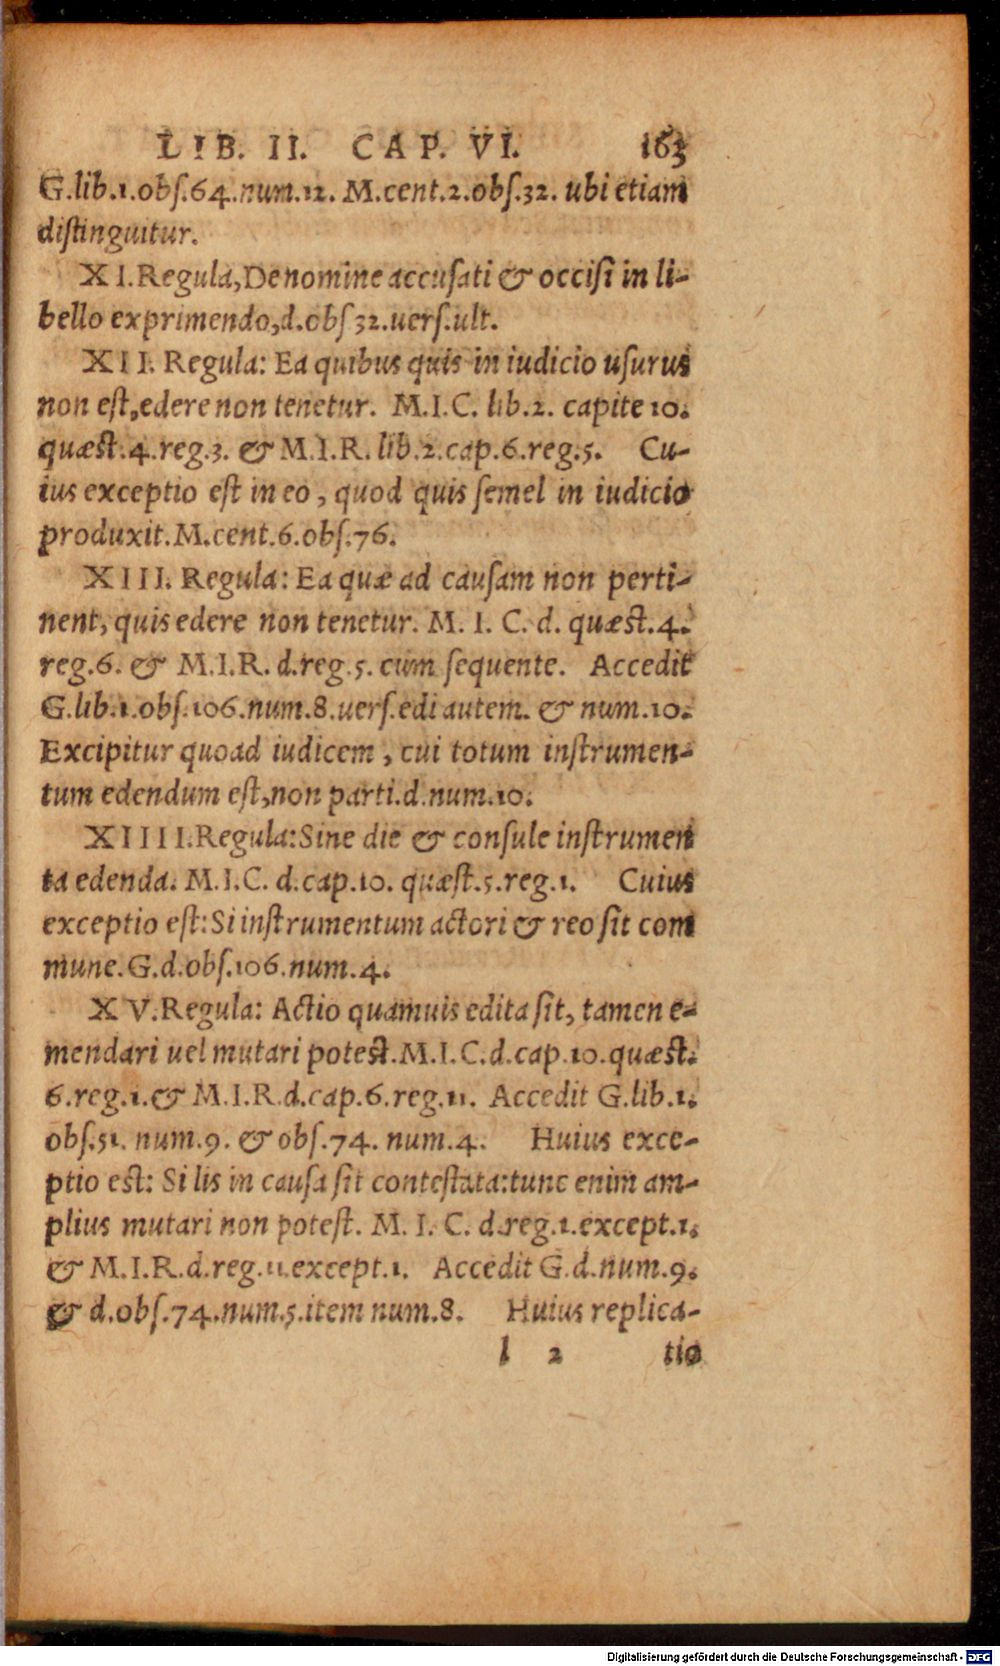 LIB. II. CAP. VI. 163
G.lib.1.obſ.64.num.12. M.cent.2.obſ.32. ubi etiam
diſtinguitur.
XI. Regula, De nomine accuſati & occiſi in li-
bello exprimendo, d.obſ 32.uerſ.ult.
XII. Regula: Ea quibus quis in iudicio uſurus
non eſt, edere non tenetur. M.I.C. lib.2. capite 10.
quæſt.4.reg.3. & M.I.R. lib.2.cap.6.reg.5. Cu-
ius exceptio eſt in eo, quod quis ſemel in iudicio
produxit. M.cent.6.obſ.76.
XIII. Regula: Ea quæ ad cauſam non perti-
nent, quis edere non tenetur. M. I. C. d. quæſt.4.
reg.6. & M.I.R. d.reg.5. cum ſequente. Accedit
G.lib.1.obſ.106.num.8.uerſ.edi autem. & num.10.
Excipitur quoad iudicem, cui totum inſtrumen-
tum edendum eſt, non parti.d.num.10.
XIIII. Regula: Sine die & conſule inſtrumen
ta edenda. M.I.C. d.cap.10. quæſt.5.reg.1. Cuius
exceptio eſt: Si inſtrumentum actori & reo ſit com
mune. G.d.obſ.106.num.4.
XV. Regula: Actio quamuis edita ſit, tamen e-
mendari uel mutari poteſt. M.I.C.d.cap.10.quæſt.
6.reg.1.& M.I.R.d.cap.6.reg.11. Accedit G.lib.1.
obſ.51. num.9. & obſ.74. num.4. Huius exce-
ptio eſt: Si lis in cauſa ſit conteſtata: tunc enim am-
plius mutari non poteſt. M. I. C. d.reg.1.except.1.
& M.I.R.d.reg.11.except.1. Accedit G.d.num.9.
& d.obſ.74.num.5.item num.8. Huius replica-
l 2 tio
Digitalisierung gefördert durch die Deutsche Forschungsgemeinschaft - DFG